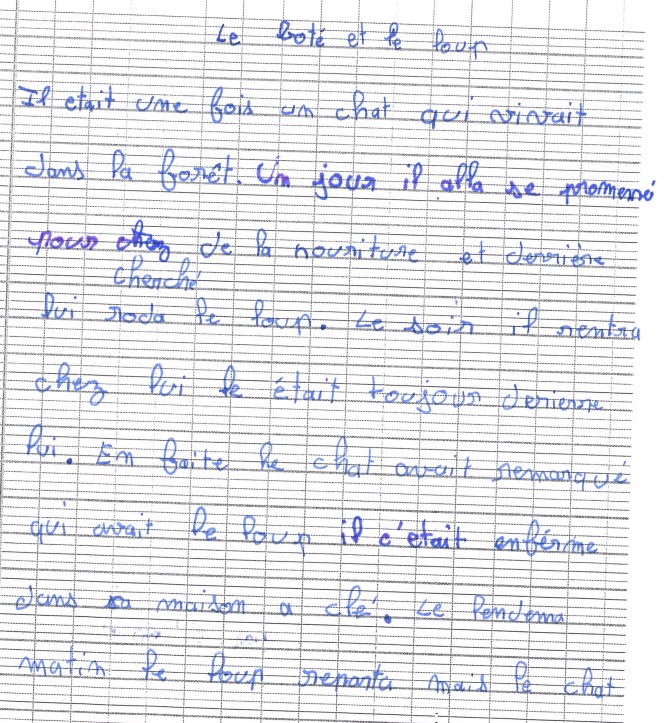 Le boté et le loup
Il etait une fois un chat qui vivait
dans la forêt. Un jour il alla se promené
pour chez de la nouriture et derrière
cherché
lui roda le loup. Le soir il rentra
chez lui le était toujour derierre
lui. En faite le chat avait remarqué
qui avait le loup il c'etait enférme
dans sa maison a clé. Le lendema
matin le loup reparta mais le chat